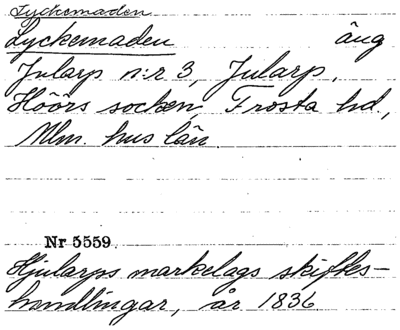 Lyckemaden
Lyckemaden äng
Jularp n:r 3, Jularp,
Höörs socken, Frosta hd.,
Mlm. hus län.
Nr 5559.
Hjularps markelags skiftes-
handlingar, år 1836